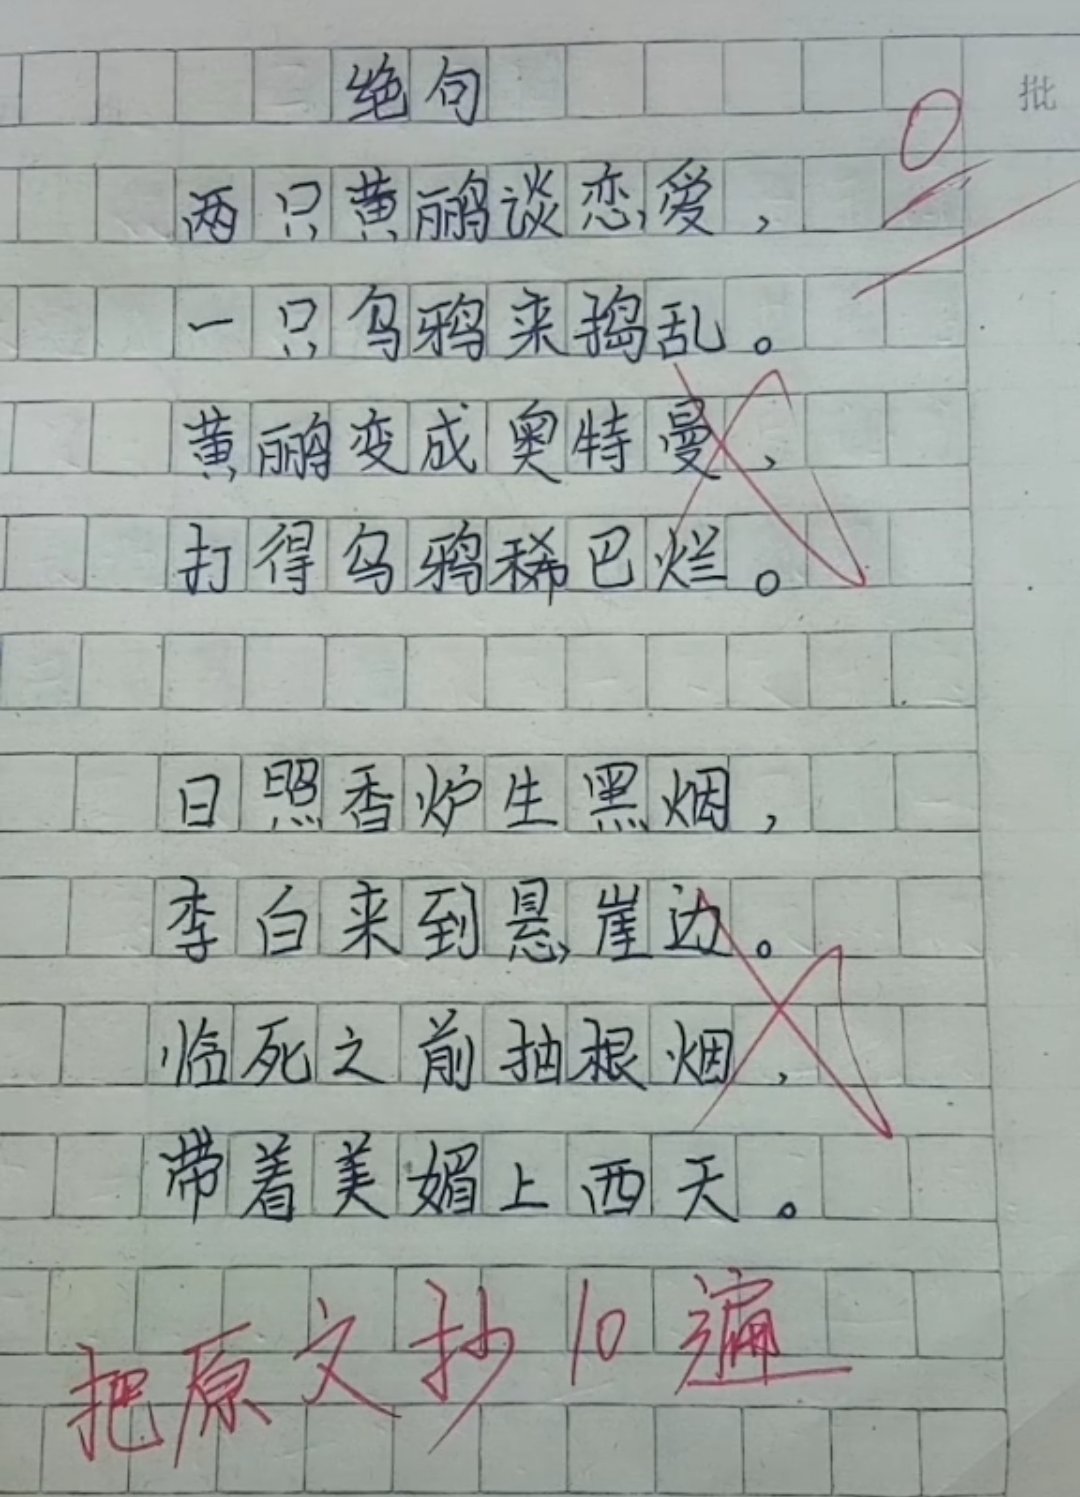 绝句
批
0
两只黄鹂谈恋爱，
一只乌鸦来捣乱。
黄鹂变成奥特曼，
打得乌鸦稀巴烂。
日照香炉生黑烟，
李白来到悬崖边。
临死之前抽根烟，
带着美媚上西天。
把原文抄10遍